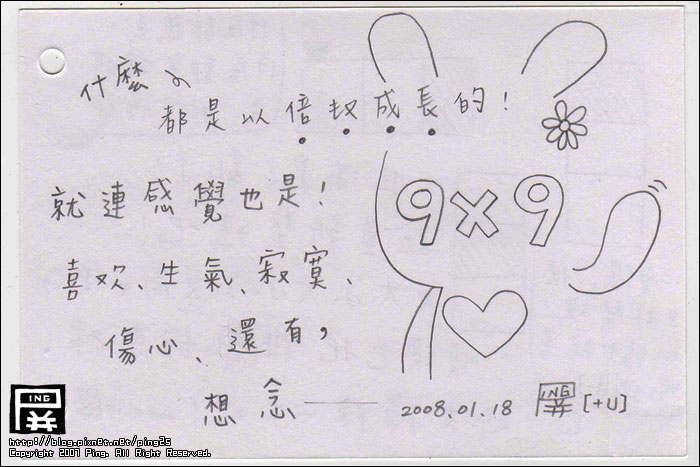 什麼ㄉ
都是以倍ㄓㄨ成長的!
就連感覺也是!
喜歡、生氣、寂寞、
傷心、還有,
想念—— 2008.01.18 ING [+U]
9×9
ING
http://blog.pixnet.net/ping2s
Copyright 2007 Ping. All Right Reserved.